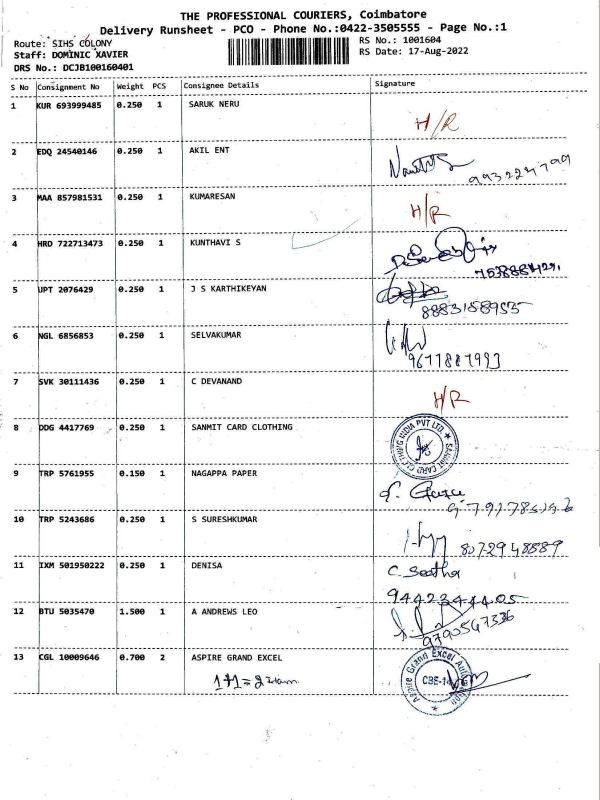 THE PROFESSIONAL COURIERS, Coimbatore
Delivery Runsheet - PCO - Phone No.:0422-3505555 - Page No.:1
Route: SIHS COLONY
RS No.: 1001604
Staff: DOMINIC XAVIER
RS Date: 17-Aug-2022
DRS No.: DCJB100160401
S No Consignment No Weight PCS Consignee Details Signature
1 KUR 693999485 0.250 1 SARUK NERU H/R
2 EDQ 24540146 0.250 1 AKIL ENT
3 MAA 857981531 0.250 1 KUMARESAN H/R
4 HRD 722713473 0.250 1 KUNTHAVI S
5 UPT 2076429 0.250 1 J S KARTHIKEYAN
8883158955
6 NGL 6856853 0.250 1 SELVAKUMAR
9677887993
7 SVK 30111436 0.250 1 C DEVANAND H/R
8 DDG 4417769 0.250 1 SANMIT CARD CLOTHING SANMIT CARD CLOTHING INDIA PVT LTD.
9 TRP 5761955 0.150 1 NAGAPPA PAPER
10 TRP 5243686 0.250 1 S SURESHKUMAR
8072948889
11 IXM 501950222 0.250 1 DENISA C. Seetha
9442344405
12 BTU 5035470 1.500 1 A ANDREWS LEO
9790567336
13 CGL 10009646 0.700 2 ASPIRE GRAND EXCEL Aspire Grand Excel Automation
1+1=2 CBE-14